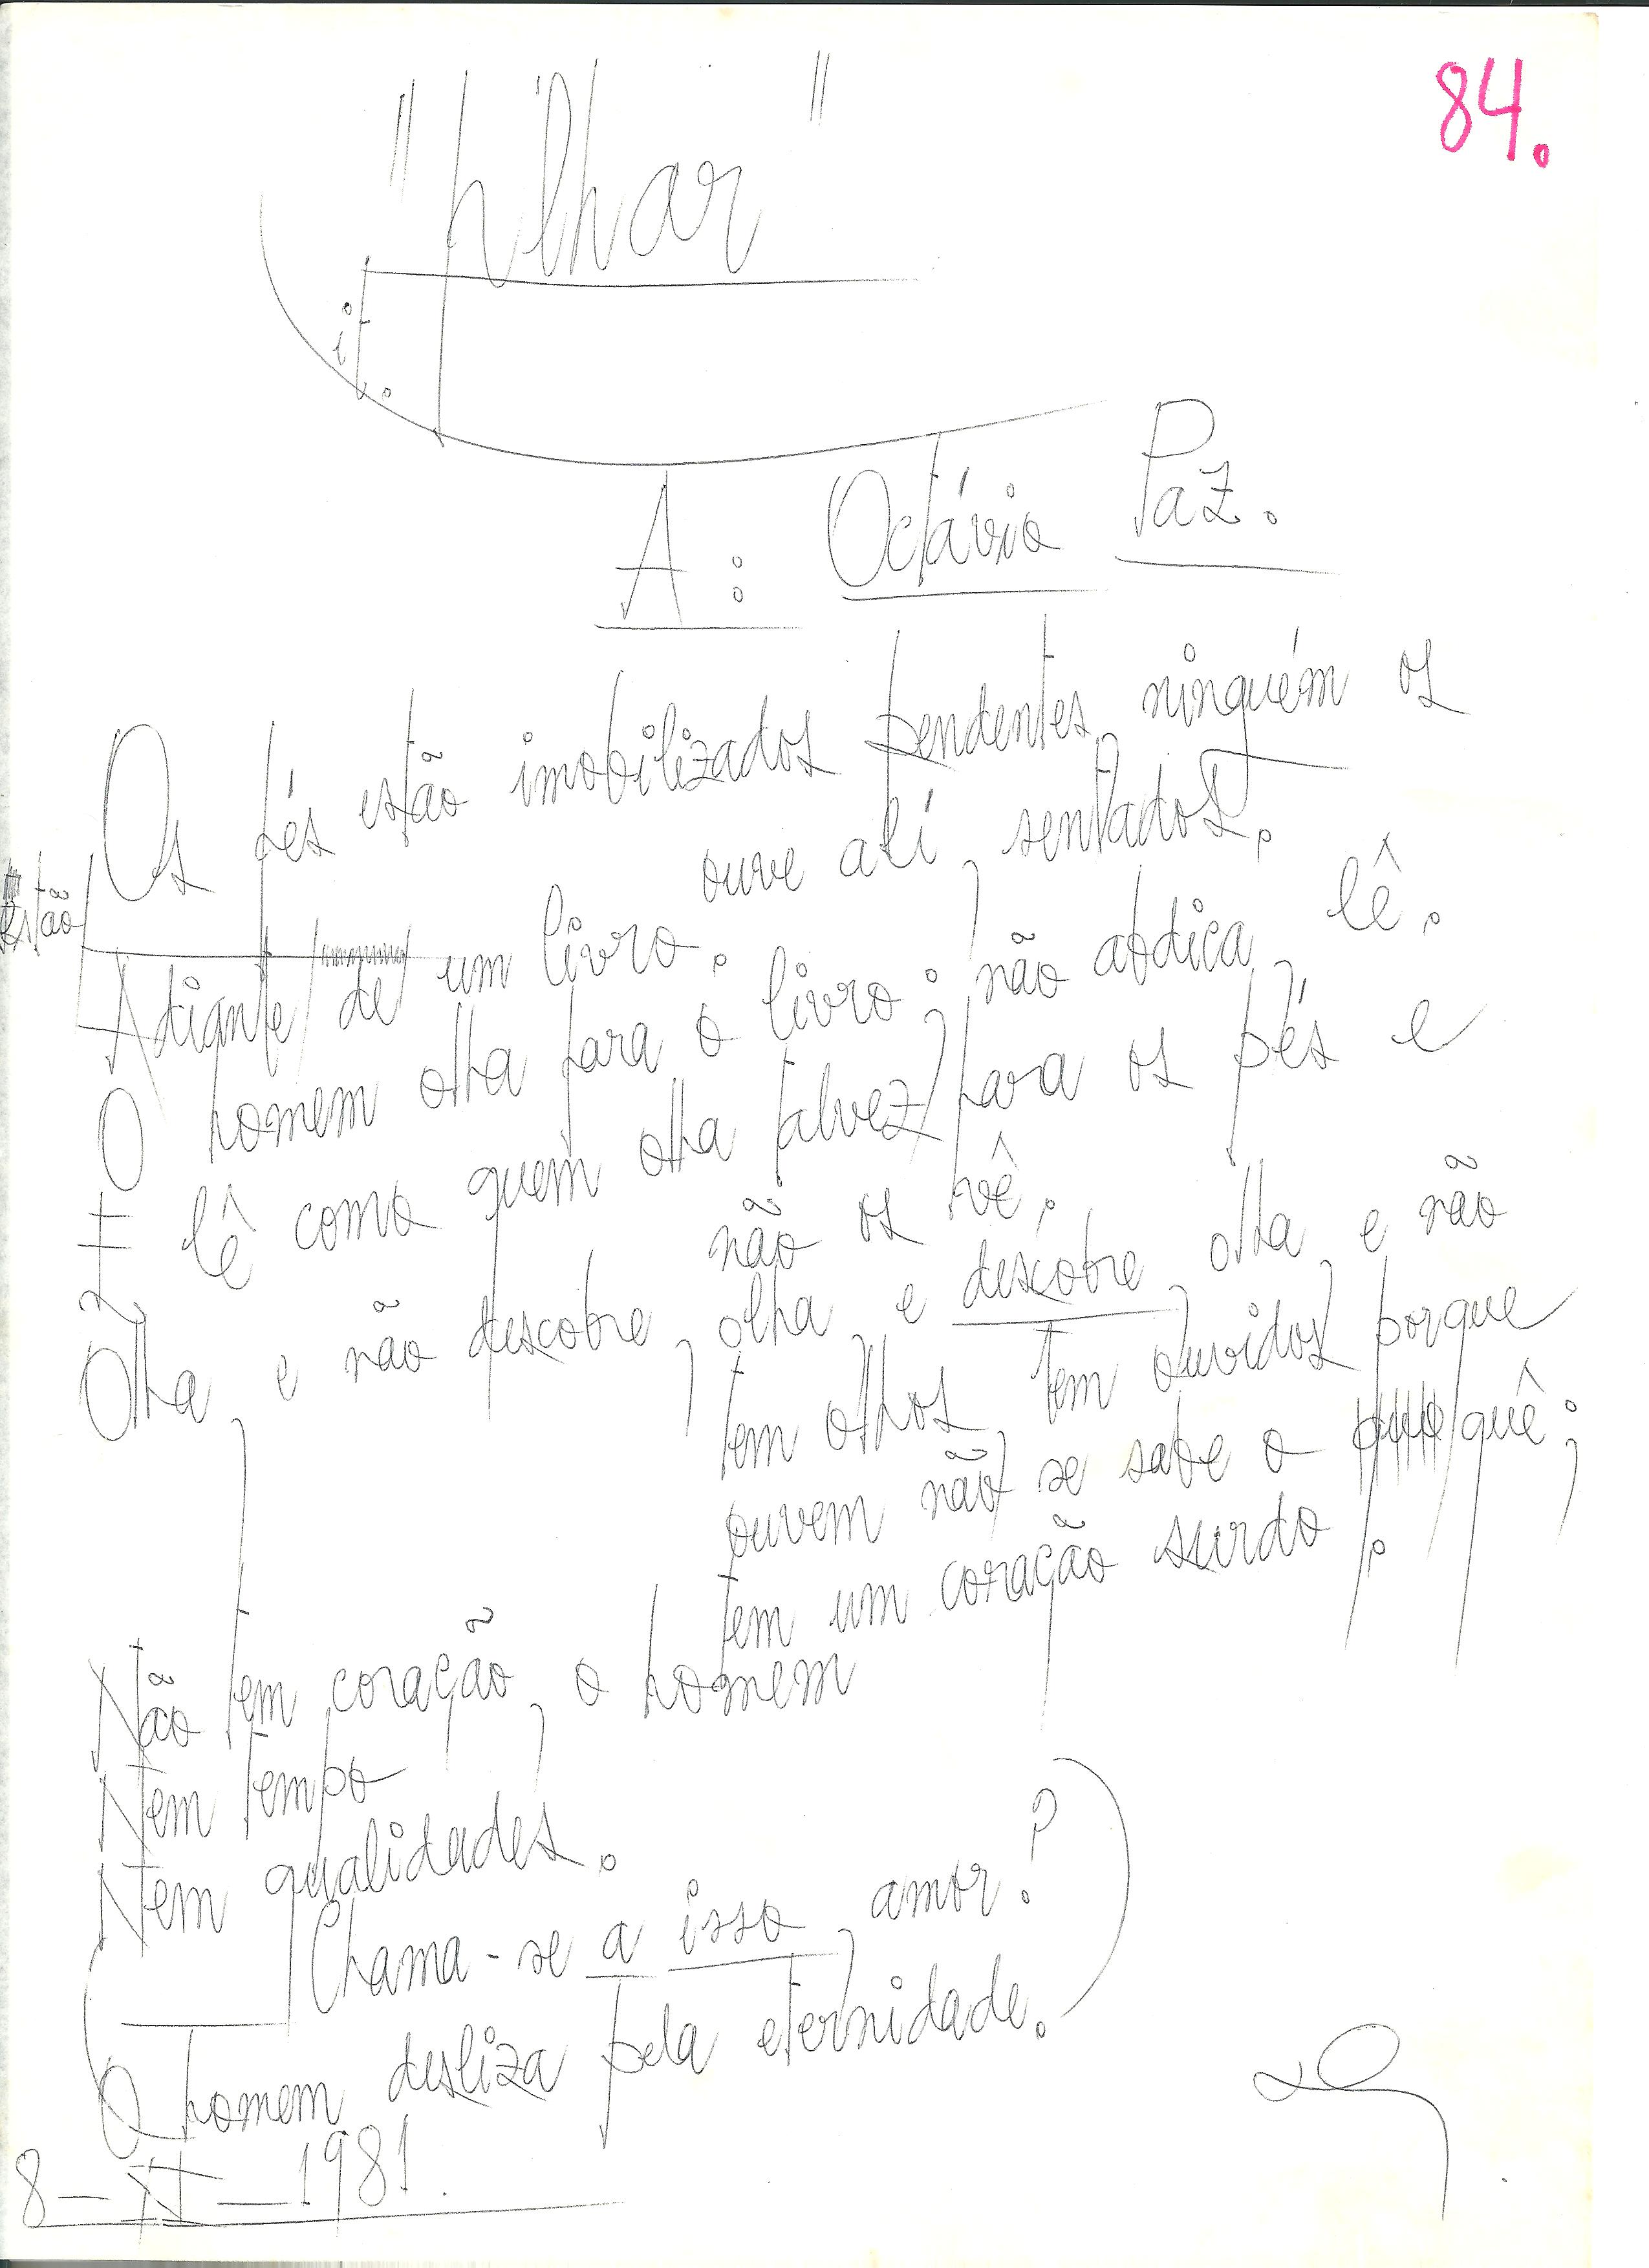 84.
"
"
A: Octávio Paz.
Os pés estão imobilizados pendentes, ninguém os
ouve alí, sentados.
estão
Adiante de um livro.
O homem olha para o livro; não abdica, lê.
lê como quem olha talvez para os pés e
não os vê.
Olha, e não descobre, olha, e descobre, olha, e não
tem olhos, tem ouvidos porque
ouvem não se sabe o quê;
tem um coração surdo.
Não tem coração, o homem
Nem tempo
Nem qualidades.
(Chama-se a isso, amor?)
O homem desliza pela eternidade.
8- -1981.